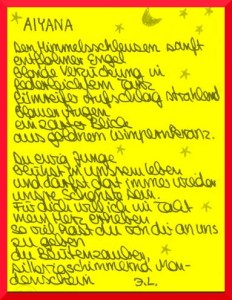 AIYANA
Den Himmelsschleusen sanft
entflohner Engel
blonde Verzückung in
federleichtem Tanz
Filmreifer Aufschlag strahlend
blauer Augen
ein zarter Blick
aus goldnem Wimpernkranz.
Du ewig Junge
trittst in unser Leben
und darfst dort immer wieder
unsre Schönste sein.
Für dich will ich im Takt
mein Herz erheben
so viel hast du von dir an uns
zu geben
du Blütenzauber,
silbrigschimmernd Mon-
denschein J.L.